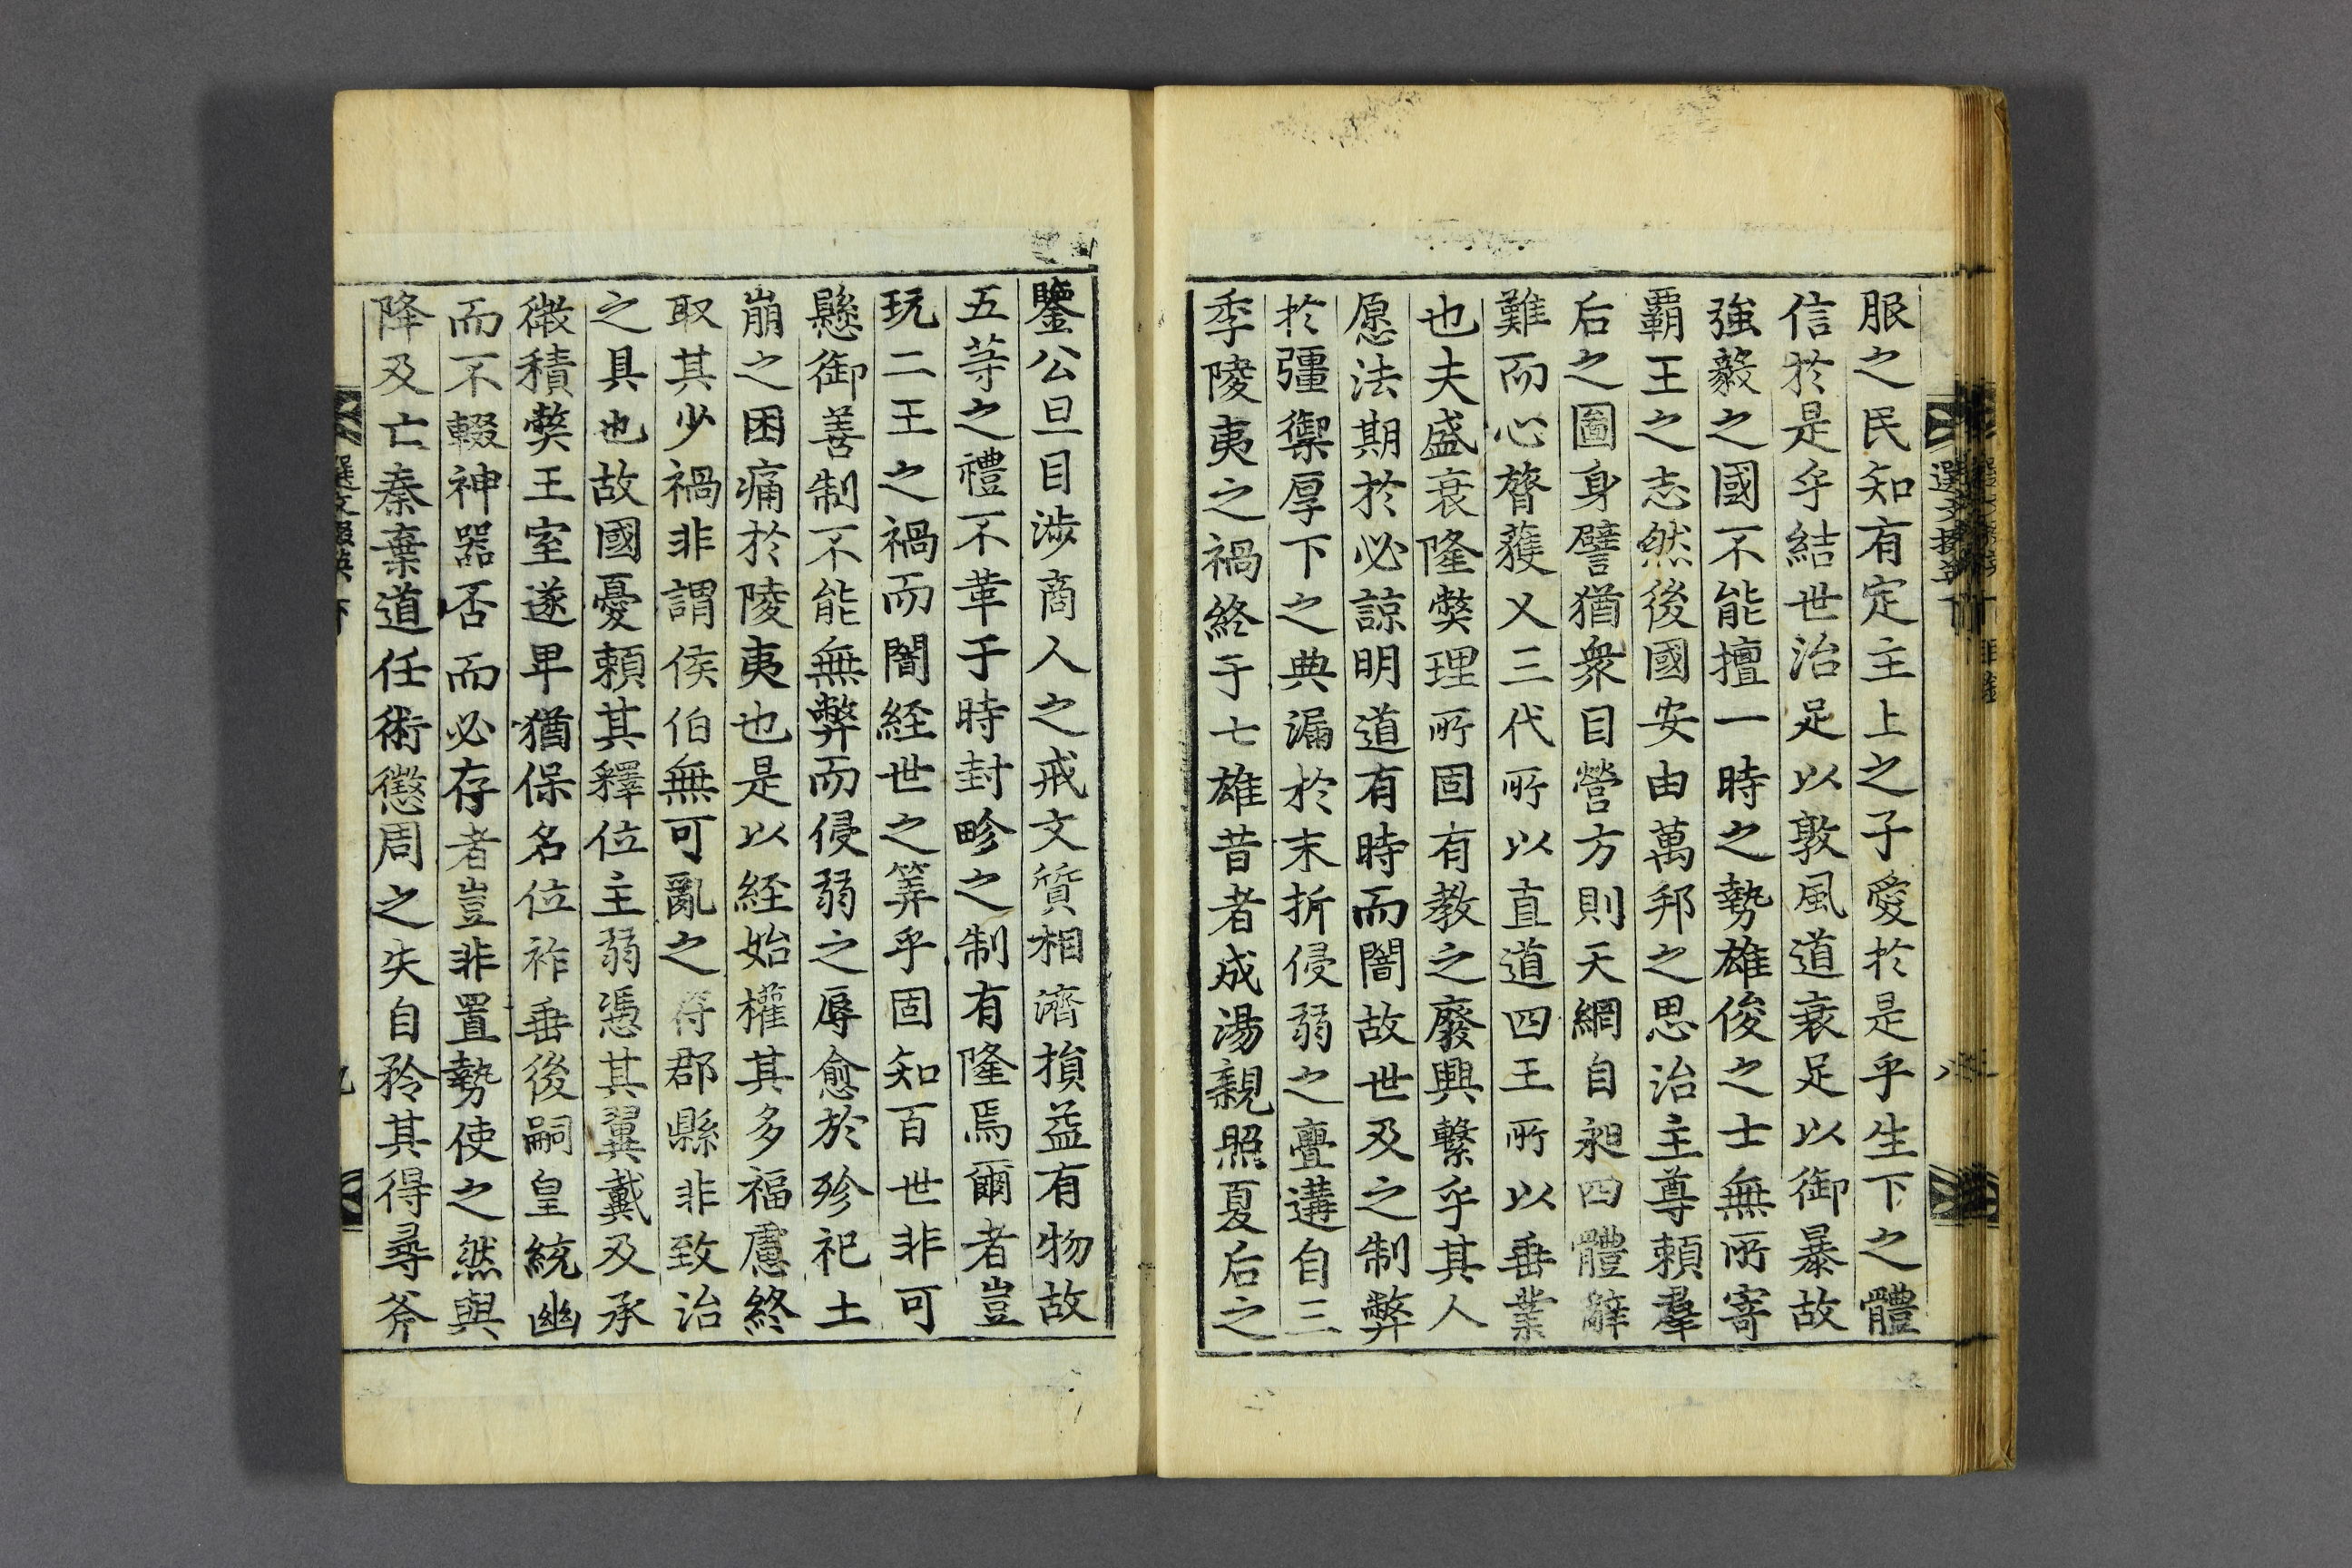 服之民知有定主上之子愛於是乎生下之體
信於是乎結世治足以敦風道衰足以御暴故
強毅之國不能擅一時之勢雄俊之士無所寄
霸王之志然後國安由萬邦之思治主尊賴羣
后之圖身譬猶衆目營方則天網自昶四體辭
難而心膂獲乂三代所以直道四王所以垂業
也夫盛衰隆獘理所固有教之廢興繫乎其人
愿法期於必諒明道有時而闇故世及之制弊
於彊禦厚下之典漏於末折侵弱之亹遘自三
季陵夷之禍終于七雄昔者成湯親照夏后之
鑒公旦目涉商人之戒文質相濟損益有物故
五等之禮不革于時封畛之制有隆焉爾者豈
玩二王之禍而闇経世之筭乎固知百世非可
懸御善制不能無弊而侵弱之辱愈於殄祀土
崩之困痛於陵夷也是以経始權其多福慮終
取其少禍非謂侯伯無可亂之符郡縣非致治
之具也故國憂賴其釋位主弱憑其翼戴及承
微積獘王室遂卑猶保名位祚垂後嗣皇統幽
而不輟神器否而必存者豈非置勢使之然與
降及亡秦棄道任術懲周之失自矜其得尋斧